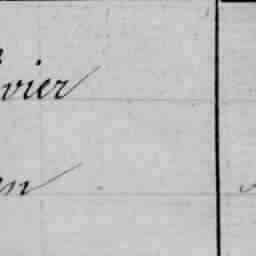 vier
en